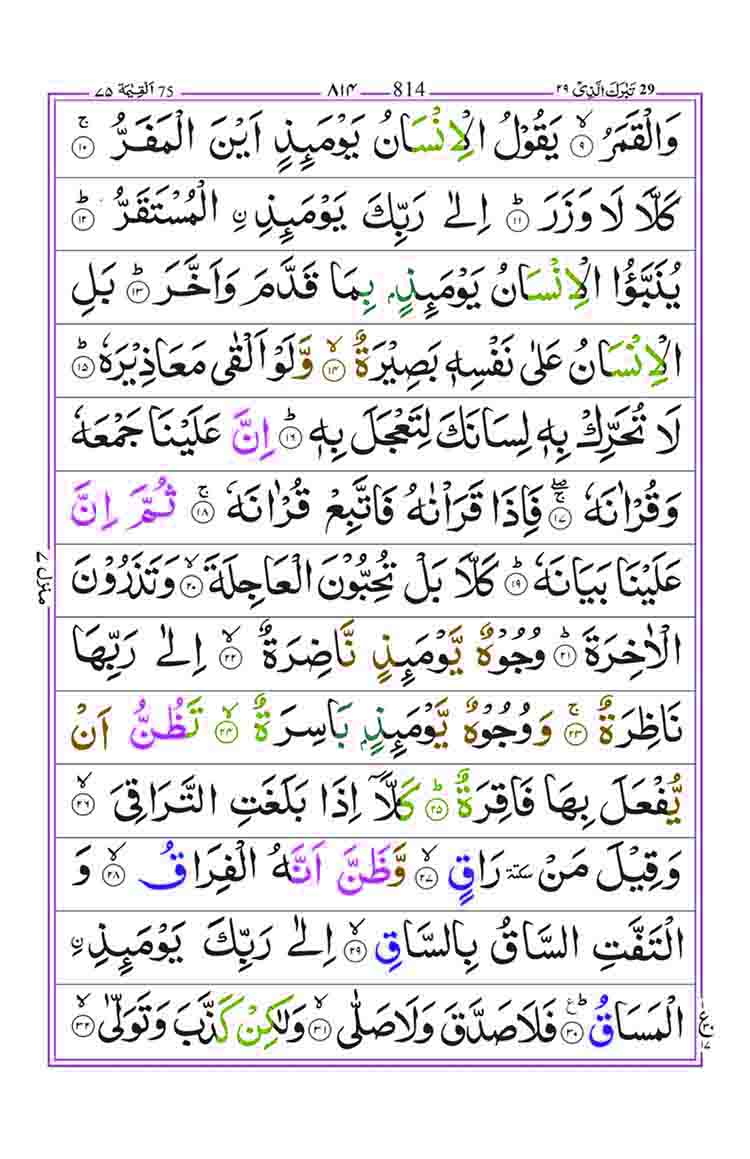 29 تَبٰرَكَ الَّذِىْ ۲۹ 814 ۸۱۴ 75 اَلْقِيٰمَة ۷۵
وَالْقَمَرُ ۙ‏ ۹ يَقُوْلُ الْاِنْسَانُ يَوْمَٮِٕذٍ اَيْنَ الْمَفَرُّ‌ ۚ‏ ۱۰
كَلَّا لَا وَزَرَ ؕ‏ ۱۱ اِلٰى رَبِّكَ يَوْمَٮِٕذِ ۨ الْمُسْتَقَرُّ ؕ‏ ۱۲
يُنَبَّؤُا الْاِنْسَانُ يَوْمَٮِٕذٍۢ بِمَا قَدَّمَ وَاَخَّرَ ؕ‏ ۱۳ بَلِ
الْاِنْسَانُ عَلٰى نَفْسِهٖ بَصِيْرَةٌ ۙ‏ ۱۴ وَّلَوْ اَلْقٰى مَعَاذِيْرَهٗؕ‏ ۱۵
لَا تُحَرِّكْ بِهٖ لِسَانَكَ لِتَعْجَلَ بِهٖؕ‏ ۱۶ اِنَّ عَلَيْنَا جَمْعَهٗ
وَقُرْاٰنَهٗۖ ۚ‏ ۱۷ فَاِذَا قَرَاْنٰهُ فَاتَّبِعْ قُرْاٰنَهٗ‌ۚ‏ ۱۸ ثُمَّ اِنَّ
عَلَيْنَا بَيَانَهٗؕ‏ ۱۹ كَلَّا بَلْ تُحِبُّوْنَ الْعَاجِلَةَ ۙ‏ ۲۰ وَتَذَرُوْنَ
الْاٰخِرَةَ ؕ‏ ۲۱ وُجُوْهٌ يَّوْمَٮِٕذٍ نَّاضِرَةٌ ۙ‏ ۲۲ اِلٰى رَبِّهَا
نَاظِرَةٌ‌ ۚ‏ ۲۳ وَوُجُوْهٌ يَّوْمَٮِٕذٍۢ بَاسِرَةٌ ۙ‏ ۲۴ تَظُنُّ اَنْ
يُّفْعَلَ بِهَا فَاقِرَةٌ ؕ‏ ۲۵ كَلَّاۤ اِذَا بَلَغَتِ التَّرَاقِىَۙ‏ ۲۶
وَقِيْلَ مَنْ سكتة رَاقٍۙ‏ ۲۷ وَّظَنَّ اَنَّهُ الْفِرَاقُۙ‏ ۲۸ وَ
الْتَفَّتِ السَّاقُ بِالسَّاقِۙ‏ ۲۹ اِلٰى رَبِّكَ يَوْمَٮِٕذِ ۨ
الْمَسَاقُؕ ‏ ۳۰ فَلَا صَدَّقَ وَلَا صَلّٰىۙ‏ ۳۱ وَلٰكِنْ كَذَّبَ وَتَوَلّٰىۙ‏ ۳۲
منزل ۷
ع ۱۷